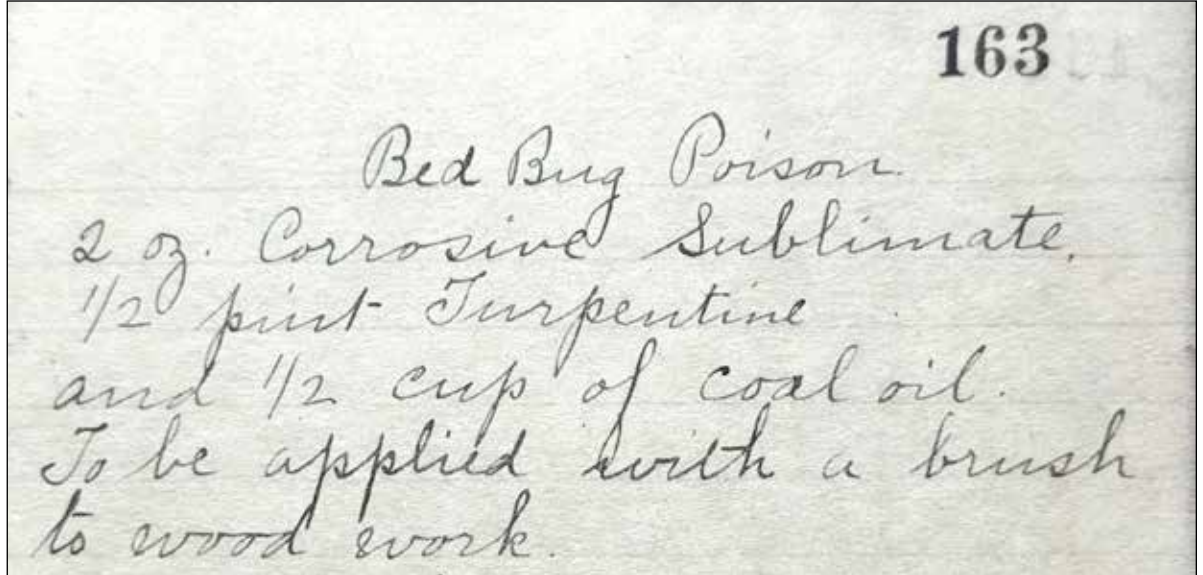 163
Bed Bug Poison
2 oz. Corrosive Sublimate.
1/2 pint Turpentine
and 1/2 cup of coal oil.
To be applied with a brush
to wood work.